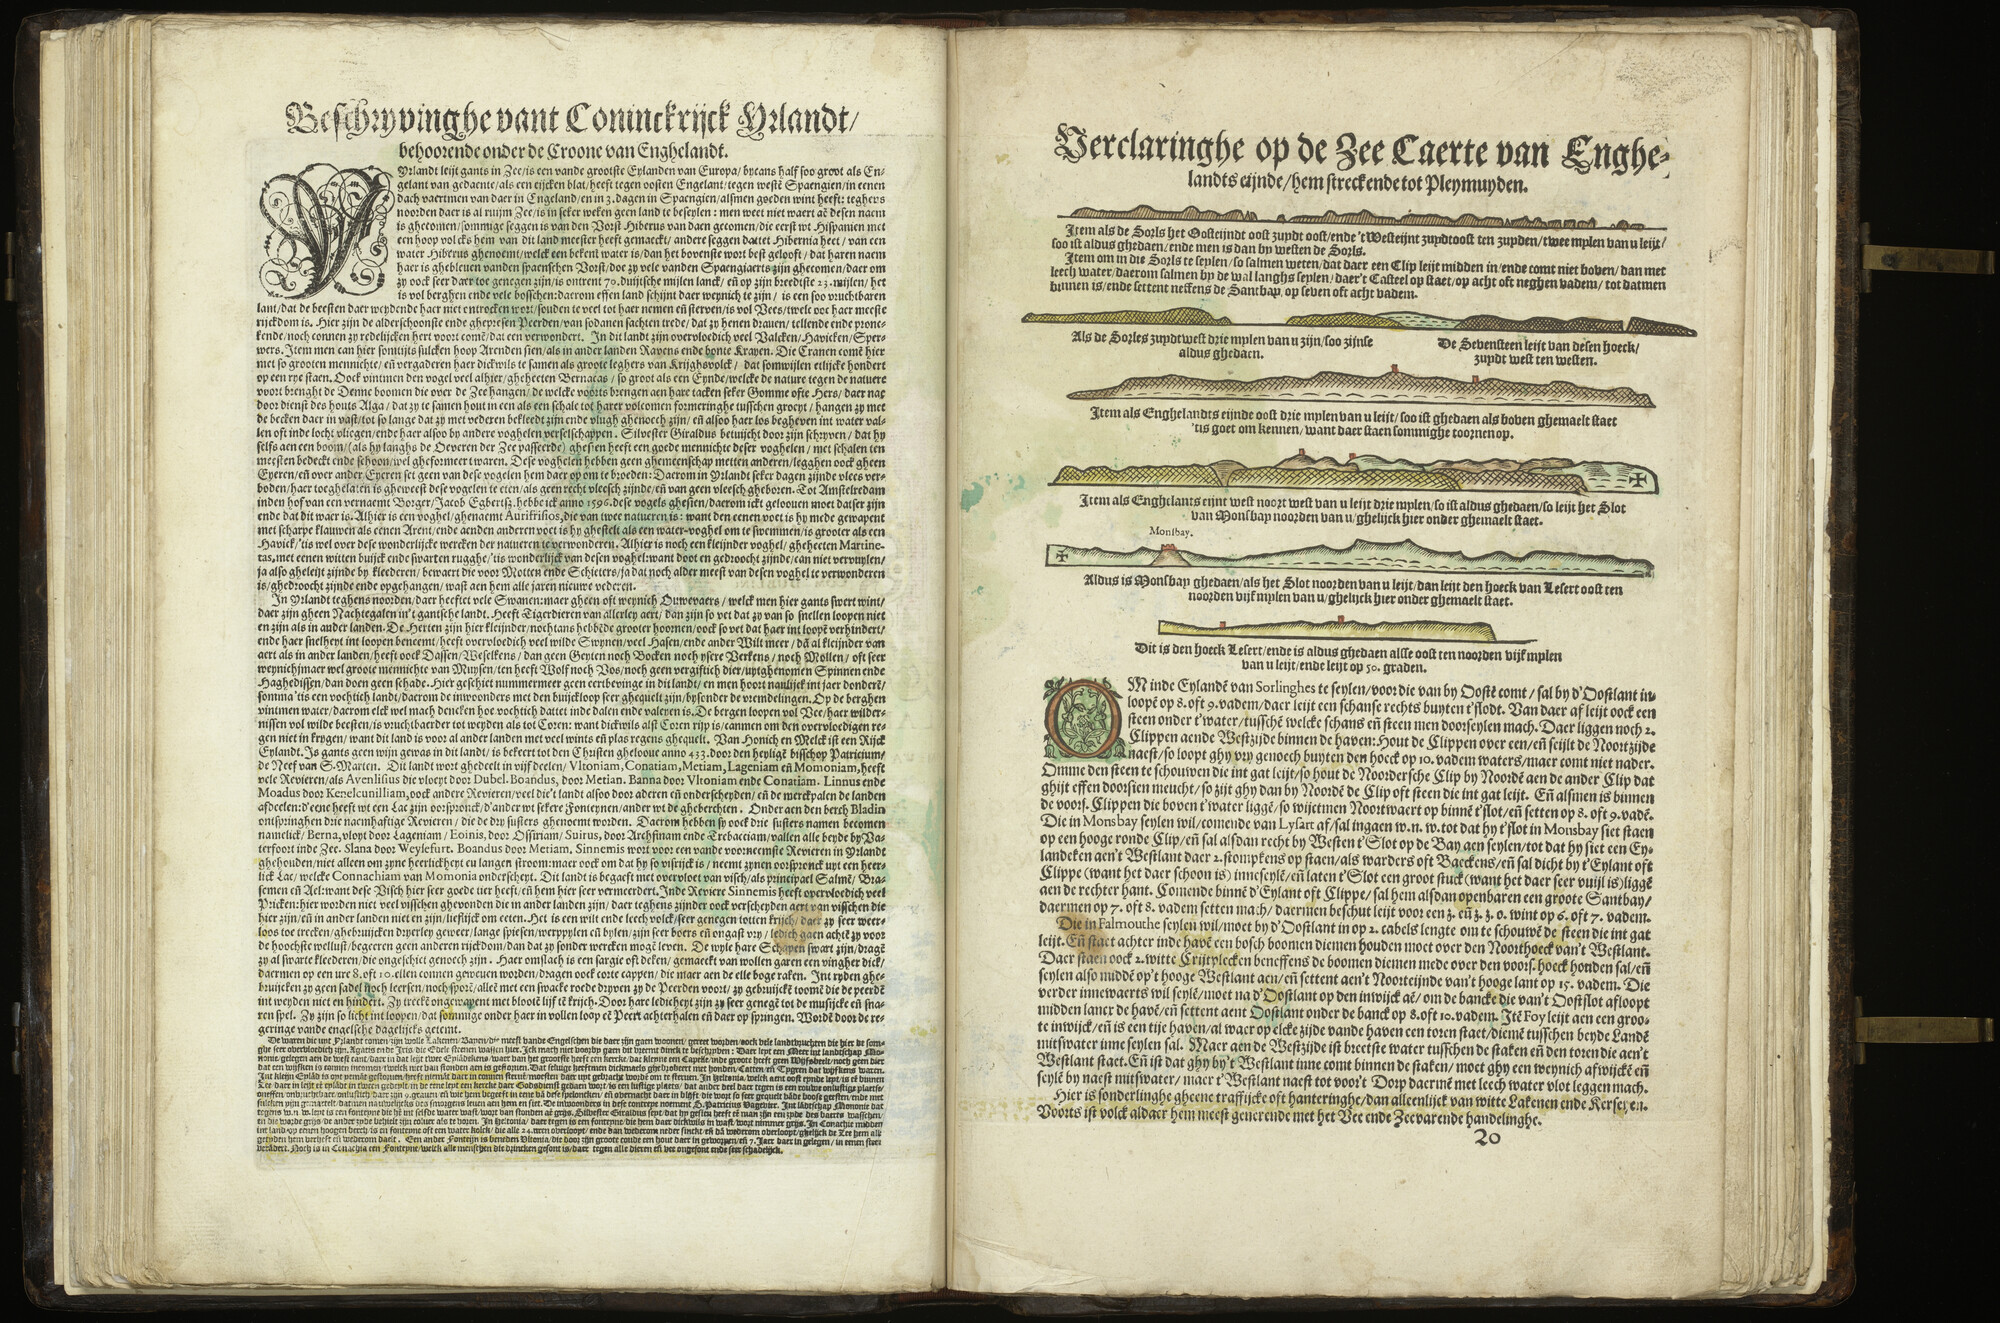 Beschryvinghe vant Coninckrijck Yrlandt/
behoorende onder de Croone van Enghelandt.
Yrlandt leijt gants in Zee/is een vande grootste Eylanden van Europa/bycans half soo groot als En-
gelant van gedaente/als een eijcken blat/heeft tegen oosten Engelant/tegen westē Spaengien/in eenen
dach vaertmen van daer in Engeland/en in 3. dagen in Spaengien/alsmen goeden wint heeft: teghens
noorden daer is al ruijm Zee/is in seker weken geen land te beseylen: men weet niet waert aē desen naem
is ghecomen/sommige seggen is van den Vorst Hiberus van daen gecomen/die eerst wt Hispanien met
een hoop volcks hem van dit land meester heeft gemaeckt/andere seggen dattet Hibernia heet/van een
water Hiberus ghenoemt/welck een bekent water is/dan het bovenste wort best gelooft/dat haren naem
haer is ghebleven vanden spaenschen Vorst/doe zy vele vanden Spaengiaerts zijn ghecomen/daer om
zy oock seer daer toe genegen zijn/is ontrent 70. duijtsche mijlen lanck/eñ op zijn breedtste 23. mijlen/het
is vol berghen ende vele bosschen:daerom effen land schijnt daer weynich te zijn/is een soo vruchtbaren
lant/dat de beesten daer weydende haer niet entrocken wort/souden te veel tot haer nemen eñ sterven/is vol Vees/twele ooc haer meeste
rijckdom is. Hier zijn de alderschoonste ende ghepresen Peerden/van sodanen sachten trede/dat zy henen draven/tellende ende pronc-
kende/noch connen zy redelijcken hert voort comē/dat een verwondert. In dit landt zijn overvloedich veel Valcken/Havicken/Sper-
wers. Item men can hier somtijts sulcken hoop Arenden sien/als in ander landen Ravens ende bonte Krayen. Die Cranen comē hier
met so grooten mennichte/eñ vergaderen haer dickwils te samen als groote leghers van Krijghsvolck/dat somwijlen etlijcke hondert
op een rye staen. Oock vintmen den vogel veel alhier/gheheeten Bernacas/so groot als een Eynde/welcke de nature tegen de natuere
voort brenght de Denne boomen die over de Zee hangen/de welcke voorts brengen aen hare tacken seker Gomme ofte Hers/daer nae
door dienst des houts Alga/dat zy te samen hout in een als een schale tot harer volcomen formeringhe tusschen groeyt/hangen zy met
de becken daer in vast/tot so lange dat zy met vederen bekleedt zijn ende vlugh ghenoech zijn/eñ alsoo haer los begheven int water val-
len oft inde locht vliegen/ende haer alsoo by andere voghelen verselschappen. Silvester Giraldus betuijcht door zijn schryven/dat hy
selfs aen een boom/(als hy langhs de Oeveren der Zee passeerde) ghesien heeft een goede mennichte deser voghelen/met schalen ten
meesten bedeckt ende schoon/wel gheformeert waren. Dese voghelen hebben geen ghemeenschap metten anderen/legghen oock gheen
Eyeren/eñ over ander Eyeren set geen van dese vogelen hem daer op om te broeden: Daerom in Yrlandt seker dagen zijnde vlees ver-
boden/haer toeghelaten is gheweest dese vogelen te eten/als geen recht vleesch zijnde/eñ van geen vleesch gheboren. Tot Amstelredam
inden hof van een vernaemt Borger/Jacob Egbertsz. hebbe ick anno 1596. dese vogels ghesien/daerom ickt gelooven moet datser zijn
ende dat dit waer is. Alhier is een voghel/ghenaemt Aurifrisios,die van twee natueren is: want den eenen voet is hy mede gewapent
met scharpe klauwen als eenen Arent/ende aenden anderen voet is hy ghestelt als een water-voghel om te swemmen/is grooter als een
Havick/'tis wel over dese wonderlijcke wercken der natueren te verwonderen. Alhier is noch een kleijnder voghel/gheheeten Martine-
tas,met eenen witten buijck ende swarten rugghe/'tis wonderlijck van desen voghel:want doot en gedroocht zijnde/can niet vervuylen/
ja also gheleijt zijnde by kleederen/bewaert die voor Motten ende Schieters/ja dat noch alder meest van desen voghel te verwonderen
is/ghedroocht zijnde ende opgehangen/wast aen hem alle jaren nieuwe vederen.
In Yrlandt teghens noorden/daer heeftet vele Swanen:maer gheen oft weynich Ouwevaers/welck men hier gants swert wint/
daer zijn gheen Nachtegalen in't gantsche landt. Heeft Tigerdieren van allerley aert/dan zijn so vet dat zy van so snellen loopen niet
en zijn als in ander landen. De Herten zijn hier kleijnder/nochtans hebbēde grooter hoornen/oock so vet dat haer int loopē verhindert/
ende haer snelheyt int loopen beneemt/heeft overvloedich veel wilde Swynen/veel Hasen/ende ander Wilt meer/dā al kleijnder van
aert als in ander landen/heeft oock Dassen/Weselkens/dan geen Geyten noch Bocken noch ysere Verkens/noch Mollen/oft seer
weynich/maer wel groote mennichte van Muysen/ten heeft Wolf noch Vos/noch geen vergiftich dier/uytghenomen Spinnen ende
Haghedissen/dan doen geen schade. Hier geschiet nummermeer geen eertbevinge in dit landt/en men hoort naulijck int jaer donderē/
somma 'tis een vochtich landt/daerom de inwoonders met den buijckloop seer ghequelt zijn/bysonder de vremdelingen. Op de berghen
vintmen water/daerom elck wel mach dencken hoe vochtich dattet inde dalen ende valeyen is. De bergen loopen vol Vee/haer wilder-
nissen vol wilde beesten/is vruchtbaerder tot weyden als tot Coren: want dickwils alst Coren rijp is/canmen om den overvloedigen re-
gen niet in krygen/want dit land is voor al ander landen met veel wints eñ plas regens ghequelt. Van Honich en Melck ist een Rijck
Eylandt. Is gants geen wijn gewas in dit landt/is bekeert tot den Christen gheloove anno 433.door den heyligē bisschop Patricium/
de Neef van S. Marten. Dit landt wort ghedeelt in vijf deelen/Vltoniam,Conatiam,Metiam,Lageniam eñ Momoniam,heeft
vele Revieren/als Avenlisius die vloeyt door Dubel. Boandus, door Metian. Banna door Vltoniam ende Conatiam. Linnus ende
Moadus door Kenelcunilliam,oock andere Revieren/veel die't landt alsoo door aderen eñ onderscheyden/eñ de merckpalen de landen
afdeelen:d'eene heeft wt een Lac zijn oorspronck/d'ander wt sekere Fonteynen/ander wt de gheberchten. Onder aen den berch Bladin
ontspringhen drie naemhaftige Revieren/die de dry susters ghenoemt worden. Daerom hebben sy oock drie susters namen becomen
namelick/Berna,vloyt door Lageniam/Eoinis,door Ossiriam/Suirus,door Archfinam ende Trebacciam/vallen alle beyde by Va-
terfoort inde Zee. Slana door Weyslefurt. Boandus door Metiam. Sinnemis wort voor een vande voorneemste Revieren in Yrlandt
ghehouden/niet alleen om zyne heerlickheyt eu langen stroom:maer oock om dat hy so visrijck is/neemt zynen oorspronck uyt een heer-
lick Lac/welcke Connachiam van Momonia onderscheyt. Dit landt is begaeft met overvloet van visch/als principael Salmē/Bra-
semen eñ Ael:want dese Visch hier seer goede tier heeft/eñ hem hier seer vermeerdert.Inde Reviere Sinnemis heeft overvloedich veel
Pricken:hier worden niet veel visschen ghevonden die in ander landen zijn/daer teghens zijnder oock verscheyden aert van visschen die
hier zijn/eñ in ander landen niet en zijn/lieflijck om eeten. Het is een wilt ende leech volck/seer genegen totten krijch/daer zy seer weer-
loos toe trecken/ghebruijcken dryerley geweer/lange spiesen/werppylen eñ bylen/zijn seer boers eñ ongast vry/ledich gaen achtē zy voor
de hoochste wellust/begeeren geen anderen rijckdom/dan dat zy sonder wercken mogē leven. De wyle hare Schapen swart zijn/dragē
zy al swarte kleederen/die ongeschiet genoech zijn. Haer omslach is een sargie oft deken/gemaeckt van wollen garen een vingher dick/
daermen op een ure 8. oft 10. ellen connen geweven worden/dragen oock corte cappen/die maer aen de elle boge raken. Int ryden ghe-
bruijcken zy geen sadel noch leersen/noch sporē/alleē met een swacke roede dryven zy de Peerden voort/zy gebruijckē toomē die de peerdē
int weyden niet en hindert. Zy treckē ongewapent met blootē lijf tē krijch. Door hare ledicheyt zijn zy seer genegē tot de musijcke eñ sna-
ren spel. Zy zijn so licht int loopen/dat sommige onder haer in vollen loop eē Peert achterhalen eñ daer op springen. Wordē door de re-
geringe vande engelsche dagelijcks getemt.
De waren die wt Yrlandt comen zijn wolle Lakenen/Bayen/die meest vande Engelschen die daer zijn gaen woonen/gereet worden/oock vele landtvruchten die hier ē som-
Verclaringhe op de Zee Caerte van Enghe-
landts eijnde/hem streckende tot Pleymuyden.
Item als de Sorls het Oosteijndt oost zuydt oost/ende 't Westeijnt zuydtoost ten zuyden/twee mylen van u leijt/
soo ist aldus ghedaen/ende men is dan by westen de Sorls.
Item om in die Sorls te seylen/so salmen weten/dat daer een Clip leijt midden in/ende comt niet boven/dan met
leech water/daerom salmen by de wal langhs seylen/daer't Casteel op staet/op acht oft neghen vadem/tot datmen
binnen is/ende settent neffens de Santbay op seven oft acht vadem.
Als de Sorles zuydtwest drie mylen van u zijn/soo zijnse
aldus ghedaen.
De Sevensteen leijt van desen hoeck/
zuydt west ten westen.
Item als Enghelandts eijnde oost drie mylen van u leijt/soo ist ghedaen als boven ghemaelt staet
'tis goet om kennen/want daer staen sommighe toornen op.
Item als Enghelants eijnt west noort west van u leijt drie mylen/so ist aldus ghedaen/so leijt het Slot
van Monsbay noorden van u/ghelijck hier onder ghemaelt staet.
Monsbay.
Aldus is Monsbay ghedaen/als het Slot noorden van u leijt/dan leijt den hoeck van Lesert oost ten
noorden vijf mylen van u/ghelijck hier onder ghemaelt staet.
Dit is den hoeck Lesert/ende is aldus ghedaen alsse oost ten noorden vijf mylen
van u leijt/ende leijt op 50. graden.
OM inde Eylandē van Sorlinghes te seylen/voor die van by Oostē comt/sal by d'Oostlant in-
loopē op 8. oft 9. vadem/daer leijt een schanse rechts buyten t'slodt. Van daer af leijt oock een
steen onder t'water/tusschē welcke schans eñ steen men doorseylen mach. Daer liggen noch 2.
Clippen aende Westzijde binnen de haven:Hout de Clippen over een/eñ seijlt de Noortzijde
naest/so loopt ghy vry genoech buyten den hoeck op 10. vadem waters/maer comt niet nader.
Omme den steen te schouwen die int gat leijt/so hout de Noordersche Clip by Noordē aen de ander Clip dat
ghijt effen doorsien meucht/so zijt ghy dan by Noordē de Clip oft steen die int gat leijt. Eñ alsmen is binnen
de voors. Clippen die boven t'water liggē/so wijctmen Noortwaert op binnē t'slot/eñ setten op 8. oft 9. vadē.
Die in Monsbay seylen wil/comende van Lysart af/sal ingaen w.n.w.tot dat hy t'slot in Monsbay siet staen
op een hooge ronde Clip/eñ sal alsdan recht by Westen t'Slot op de Bay aen seylen/tot dat hy siet een Ey-
landeken aen't Westlant daer 2.stompkens op staen/als warders oft Baeckens/eñ sal dicht by t'Eylant oft
Clippe (want het daer schoon is) inneseylē/eñ laten t'Slot een groot stuck (want het daer seer vuijl is) liggē
aen de rechter hant. Comende binnē d'Eylant oft Clippe/sal hem alsdan openbaren een groote Santbay/
daermen op 7. oft 8. vadem setten mach/daermen beschut leijt voor een z. eñ z. z. o. wint op 6. oft 7. vadem.
Die in Falmouthe seylen wil/moet by d'Oostlant in op 2. cabels lengte om te schouwē de steen die int gat
leijt. Eñ staet achter inde havē een bosch boomen diemen houden moet over den Noorthoeck van't Westlant.
Daer staen oock 2. witte Crijtplecken beneffens de boomen diemen mede over den voors. hoeck houden sal/eñ
seylen also middē op't hooge Westlant aen/eñ settent aen't Noorteijnde van't hooge lant op 15. vadem. Die
verder innewaerts wil seylē/moet na d'Oostlant op den inwijck aē/om de bancke die van't Oostslot afloopt
midden lancr de havē/eñ settent aent Oostlant onder de banck op 8. oft 10. vadem. Itē Foy leijt aen een groo-
te inwijck/eñ is een tije haven/al waer op elcke zijde vande haven een toren staet/diemē tusschen beyde Landē
mitswater inne seylen sal. Maer aen de Westzijde ist breetste water tusschen de staken eñ den toren die aen't
Westlant staet. Eñ ist dat ghy by't Westlant inne comt binnen de staken/moet ghy een weynich afwijckē eñ
seylē by naest mitswater/maer t'Westlant naest tot voor't Dorp daermē met leech water vlot leggen mach.
Hier is sonderlinghe gheene traffijcke oft hanteringhe/dan alleenlijck van witte Lakenen ende Kerseyen.
Voorts ist volck aldaer hem meest generende met het Vee ende Zeevarende handelinghe.
20